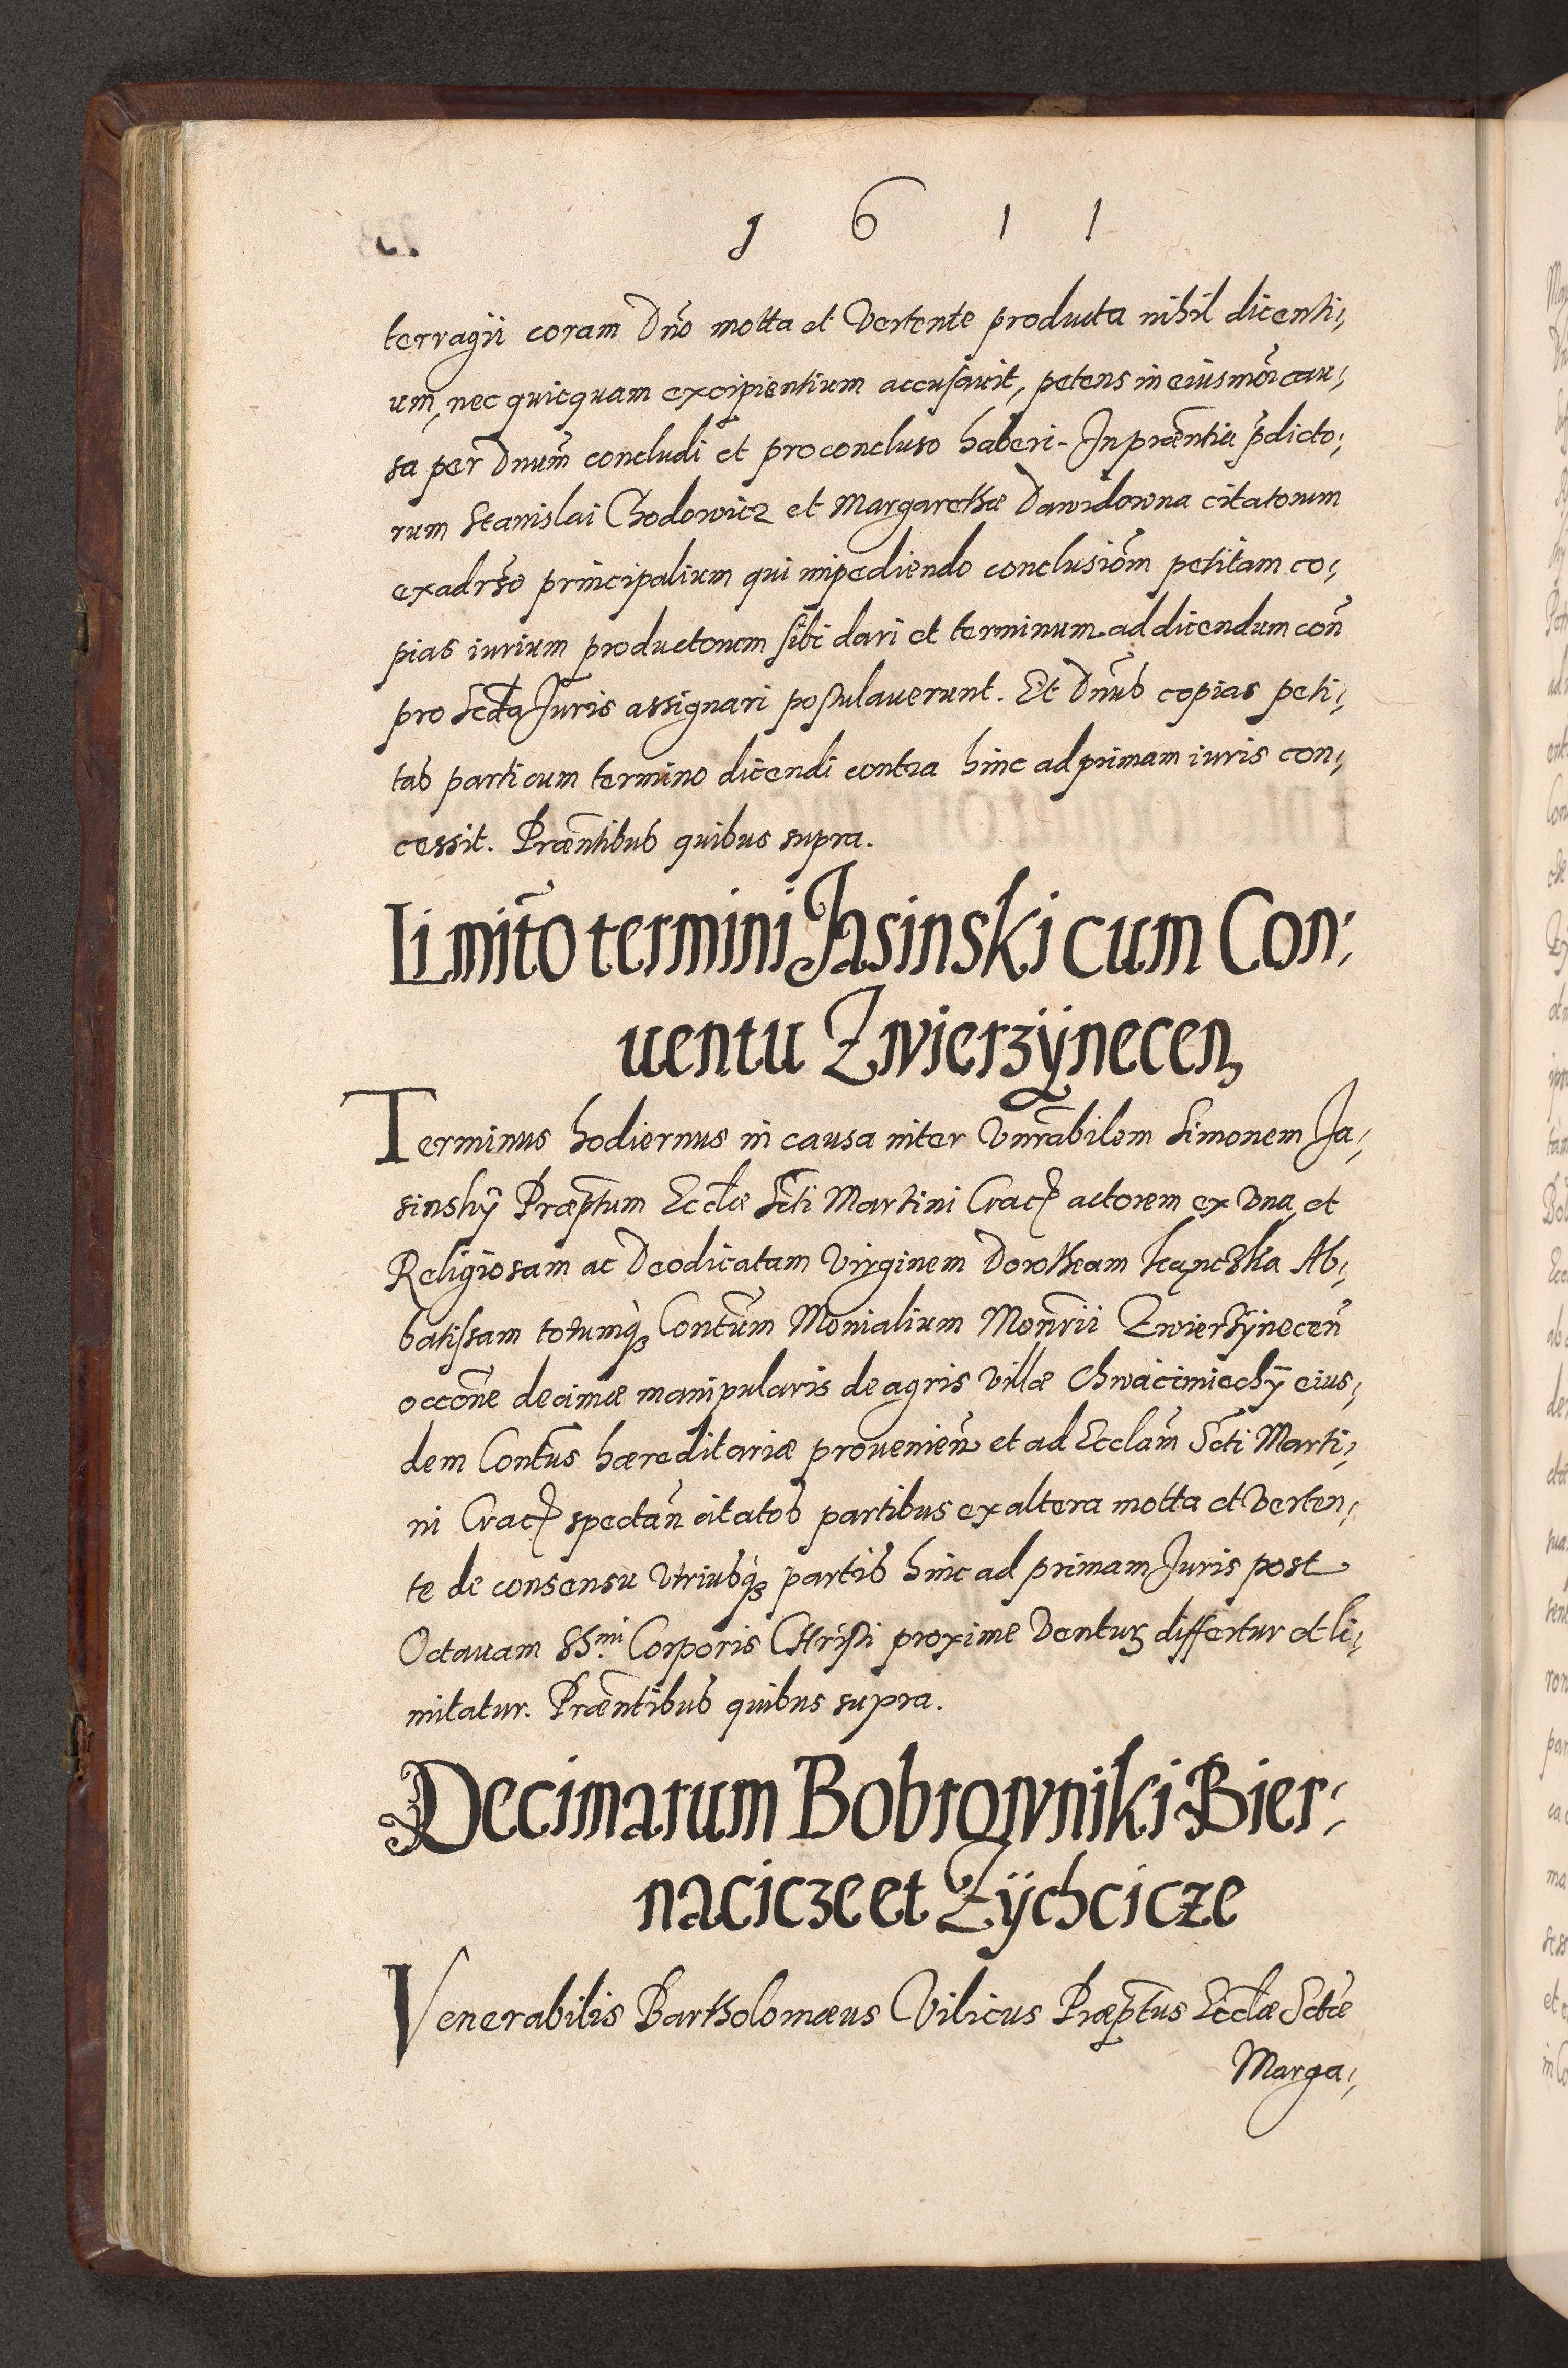 1611
terragii coram Dño motta et Vertente producta nihil dicenti,
um, nec quicquam excipientium accusavit, petens in eiusmõi cau,
sa per Dnum̃ concludi et pro concluso haberi - In præñtia p̃dicto,
rum Stanislai Chodowicz et Margarethæ Dawidowna citatorum
ex adrso principalium qui impediendo conclusiõm petitam co,
pias iurium productorum sibi dari et terminum ad dicendum coñ
pro Scđa Juris assignari postulaverunt. Et Dnũs copias peti,
tas parti cum termino dicendi contra hinc ad primam iuris con,
cessit. Præñtibus quibus supra.
Limitõ termini Jasinski cum Con,
uentu Zwierzÿnecen
Terminus hodiernus in causa inter Vnrãbilem Simonem Ja,
sinskÿ Præptum Ecclæ Scti Martini Crac̃ actorem ex Vna, et
Religiosam ac Deodicatam Virginem Dorotheam Ab,
batissam totumq̃ Contũm Monialium Monrii Zwierzÿneceñ
occõne decimæ manipularis de agris Villæ Chwacimiechÿ eius,
dem Contũs hæreditariæ provenieñ et ad Ecclam̃ Scti Marti,
ni Crac̃ spectañ citatos partibus ex altera motta et Verten,
te de consensu Vtriusq̃ partis hinc ad primam Juris post
Octauam SS.mi Corporis Christi proxime Ventur̃ differtur et li,
mitatur. Præñtibus quibus supra.
Decimarum Bobrowniki Bier,
naciczeet Zÿchcicze
Venerabilis Bartholomæus Vilicus Præptus Ecclæ Sctæ
Marga,